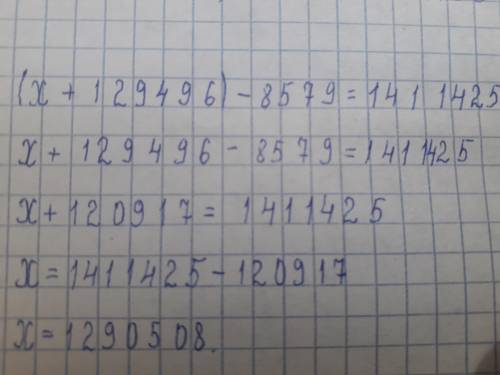 (x + 129496) - 8579 = 1411425
x + 129496 - 8579 = 1411425
x + 120917 = 1411425
x = 1411425 - 120917
x = 1290508.